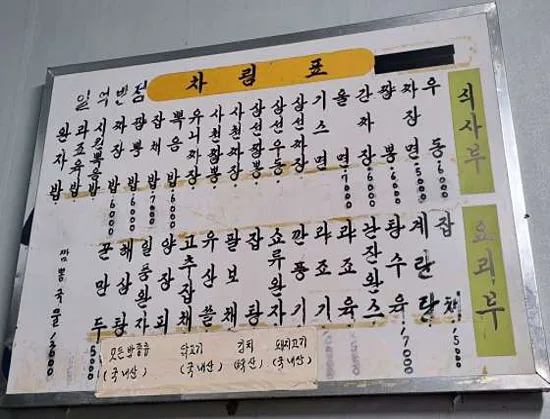 차림표
식사부
우동 6000
짜장면 5000
짱뽕 6000
간짜장 6000
울면 7000
기스면
삼선짜장
삼선우동
삼선짱뽕
사천짜장
사천짱뽕
유니짜장
뽁음밥 6000
잡채밥 7000
짱뽕밥 6000
짜장밥 6000
시킨뽁음밥
과죠육밥
완자밥
일억반점
요리부
잡채 15000
계란탕 7000
탕수육
난잔완스
라조육
라조기
깐풍기
쇼류완자
잡탕
팔보채
유산쓸
고추잡채
양장피
일품완자
해삼탕
꾼만두 5000
짬뽕국물
모든밥종류 (국내산)
닭고기 (국내산)
김치
돼지고기 (국내산)